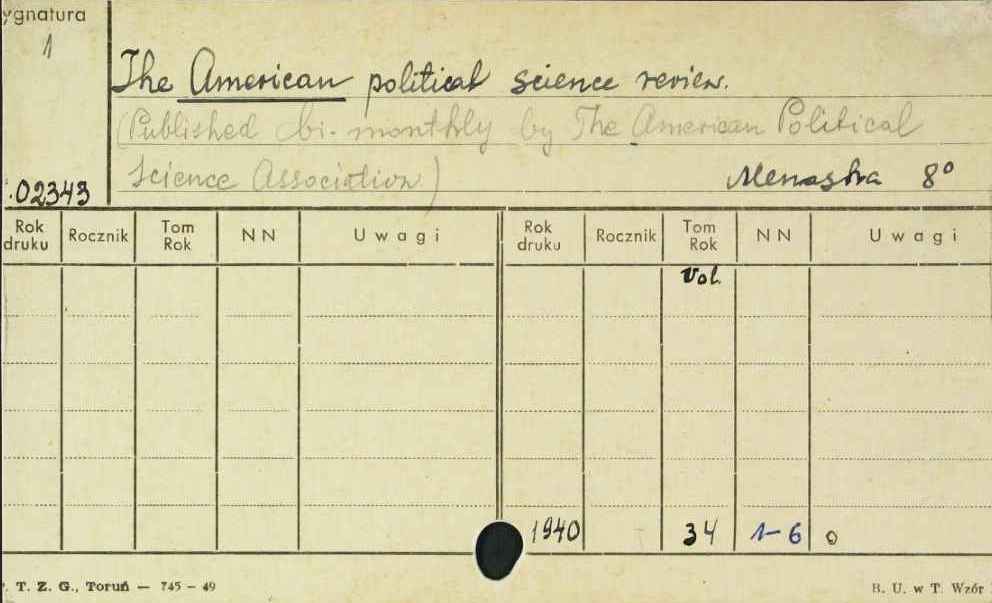 ygnatura
1
The American political science review.
(Published bi-monthly by The American Political
Science Association)
Menasha 8°
.02343
Rok druku Rocznik Tom Rok NN Uwagi Rok druku Rocznik Tom Rok NN Uwagi
Vol.
1940 34 1-6 o
. T. Z. G., Toruń — 745 - 49
B. U. w T. Wzór